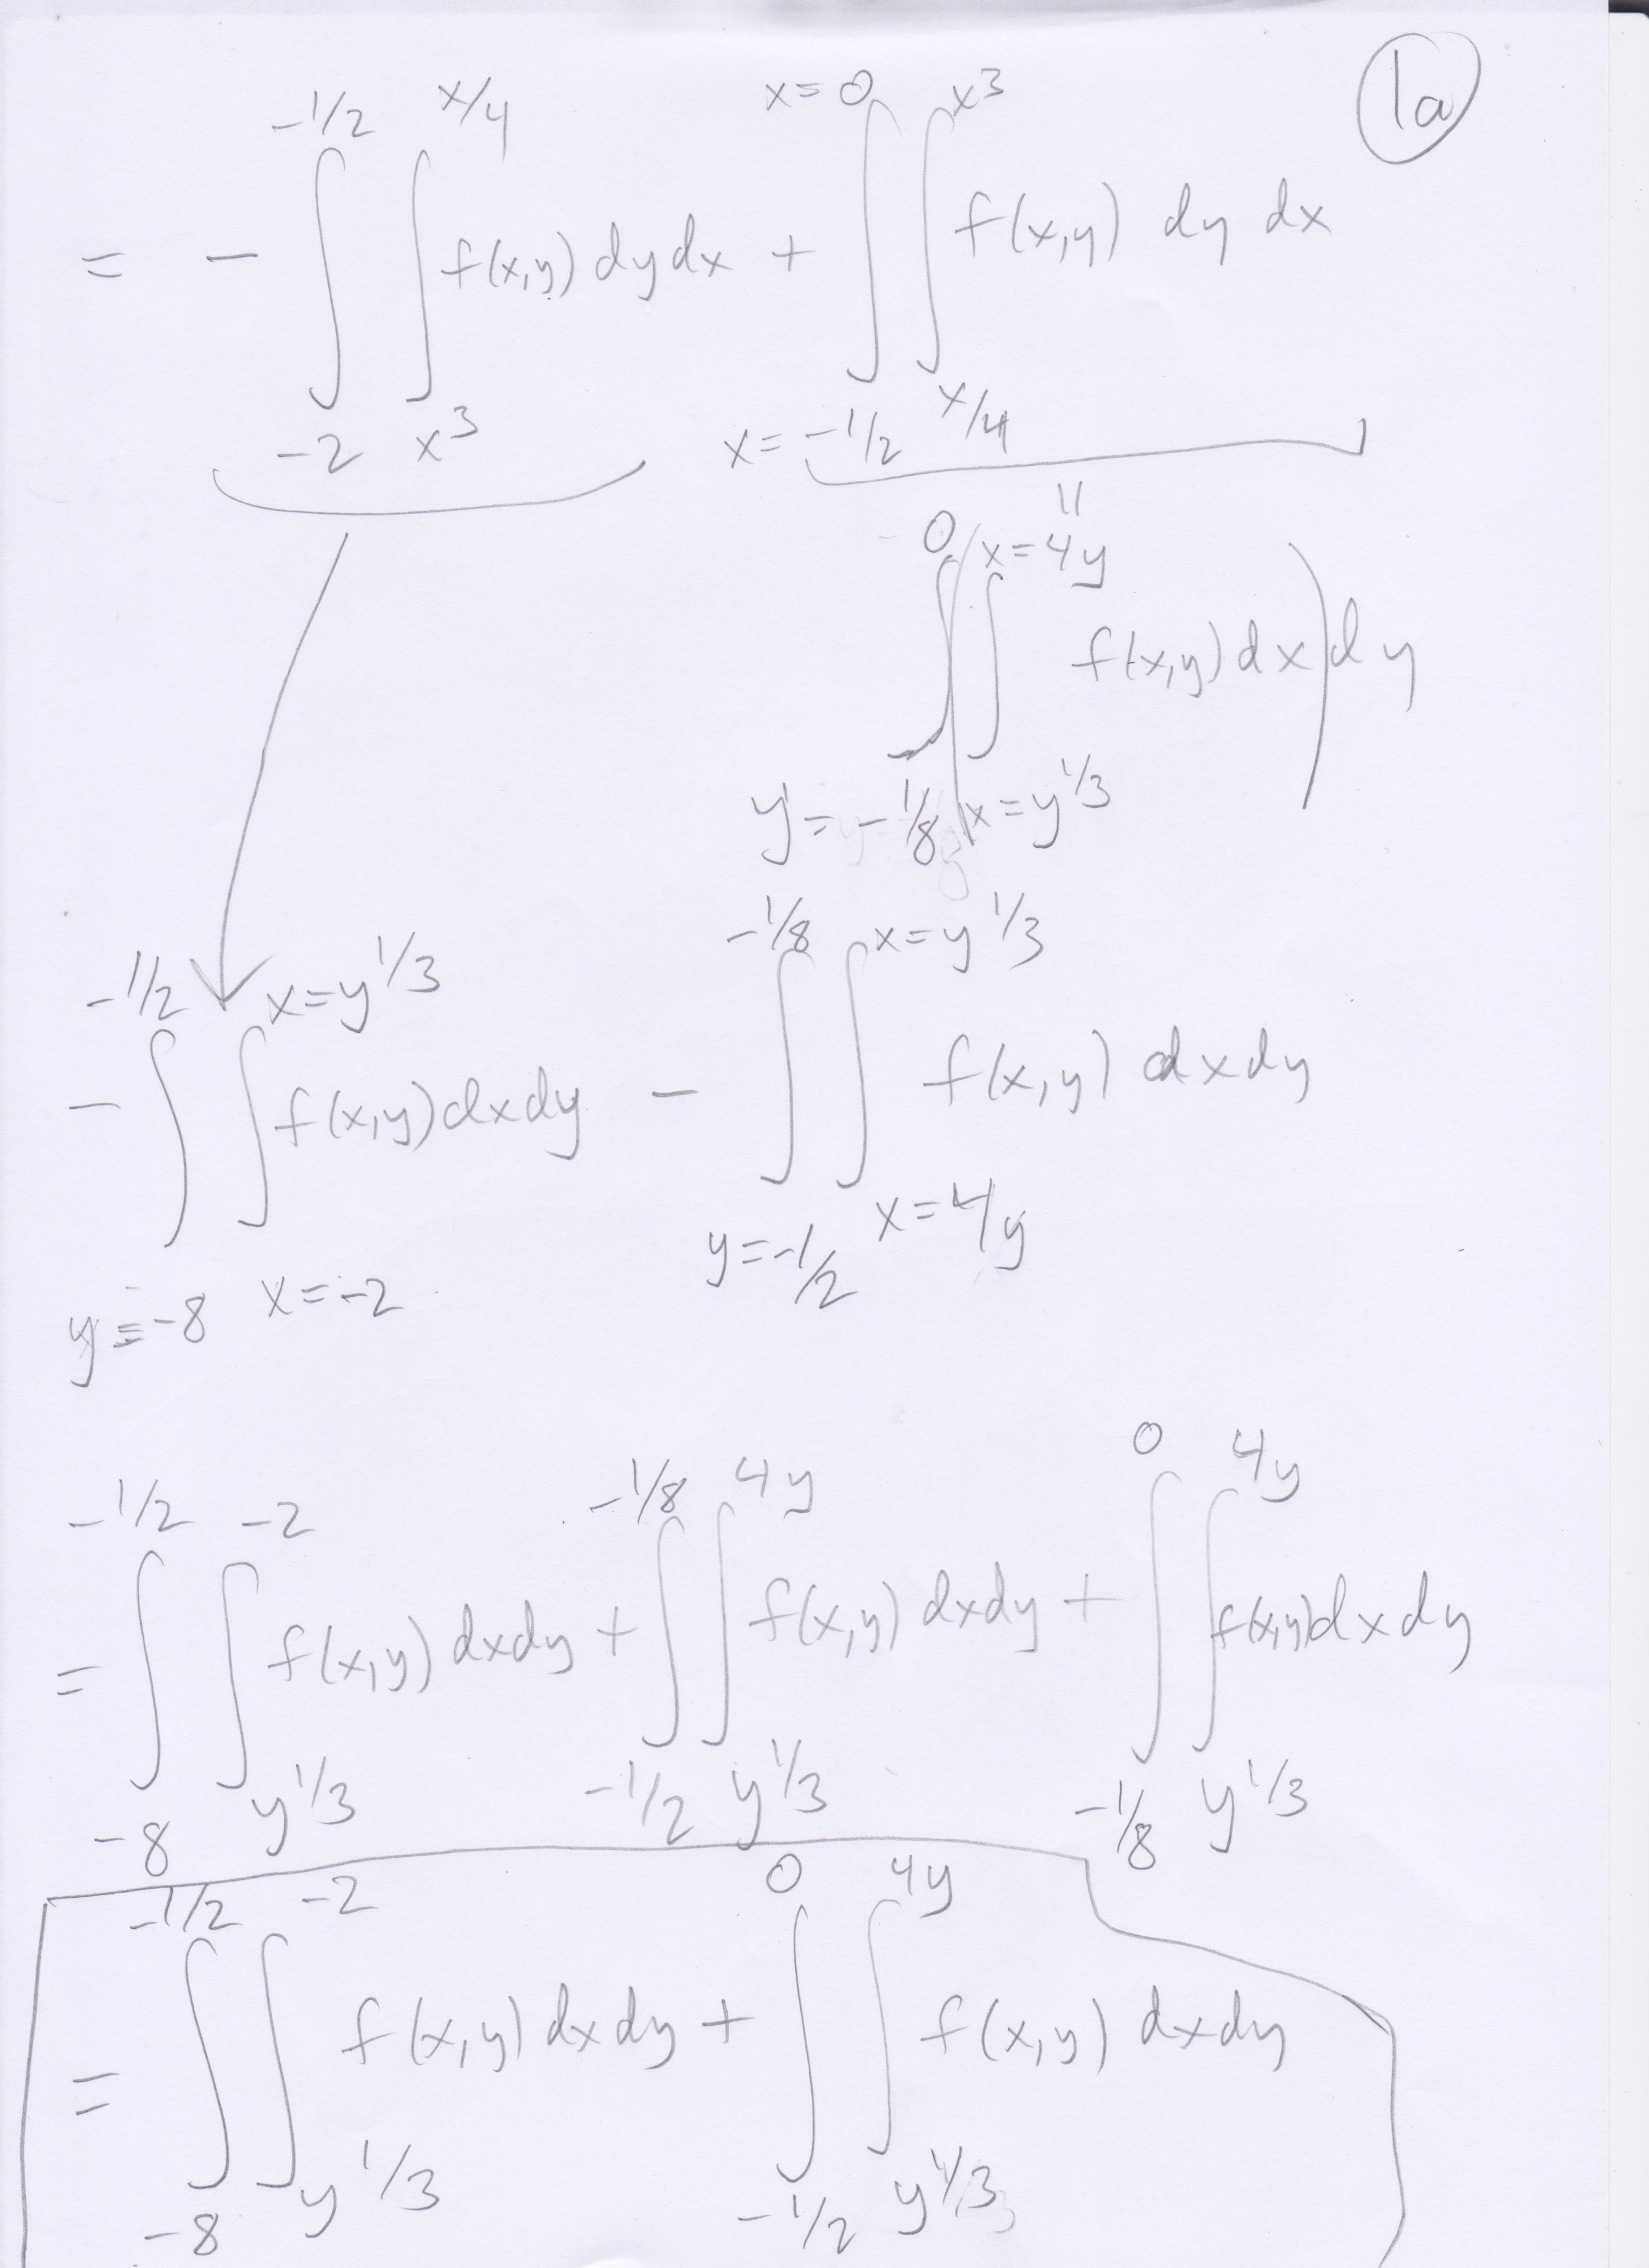 1a
= - ∫_{-2}^{-1/2} ∫_{x^3}^{x/4} f(x,y) dy dx + ∫_{x=-1/2}^{x=0} ∫_{x/4}^{x^3} f(x,y) dy dx
||
∫_{y=-1/8}^{0} ( ∫_{x=y^{1/3}}^{x=4y} f(x,y) dx ) dy
- ∫_{y=-8}^{-1/2} ∫_{x=-2}^{x=y^{1/3}} f(x,y) dx dy - ∫_{y=-1/2}^{-1/8} ∫_{x=4y}^{x=y^{1/3}} f(x,y) dx dy
= ∫_{-8}^{-1/2} ∫_{y^{1/3}}^{-2} f(x,y) dx dy + ∫_{-1/2}^{-1/8} ∫_{y^{1/3}}^{4y} f(x,y) dx dy + ∫_{-1/8}^{0} ∫_{y^{1/3}}^{4y} f(x,y) dx dy
= ∫_{-8}^{-1/2} ∫_{y^{1/3}}^{-2} f(x,y) dx dy + ∫_{-1/2}^{0} ∫_{y^{1/3}}^{4y} f(x,y) dx dy